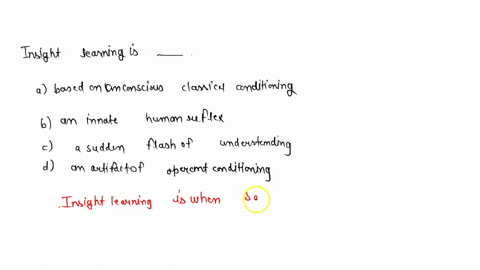 Insight learning is ___ .
a) based on Unconscious classical conditioning
b) an innate human reflex
c) a sudden flash of understanding
d) an artifact of operant conditioning
.Insight learning is when so